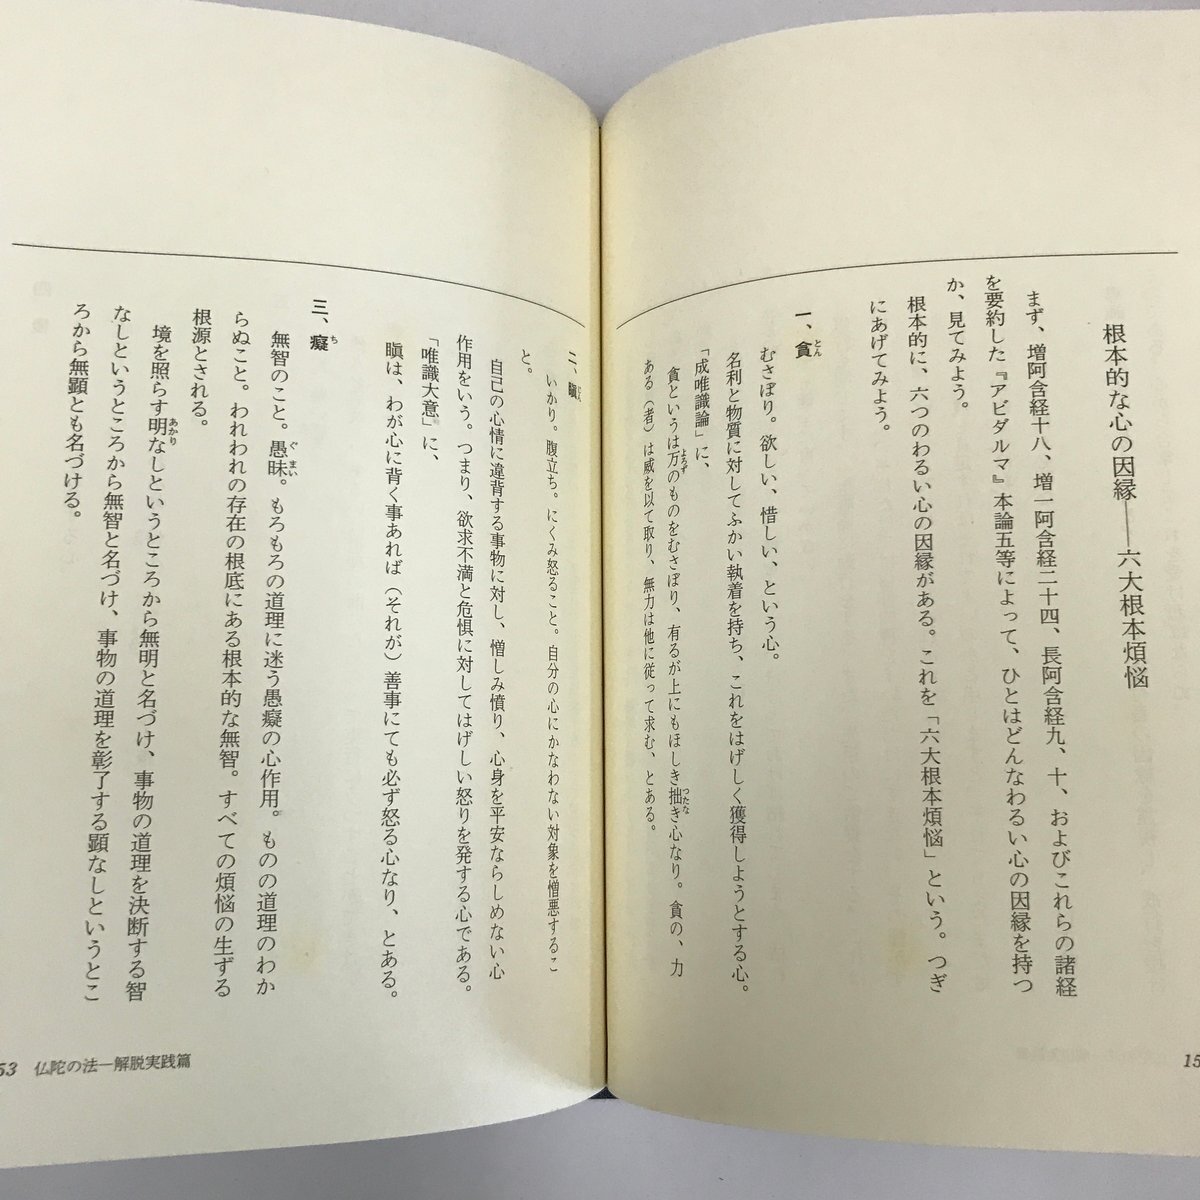 根本的な心の因縁――六大根本煩悩
まず、増阿含経十八、増一阿含経二十四、長阿含経九、十、およびこれらの諸経
を要約した『アビダルマ』本論五等によって、ひとはどんなわるい心の因縁を持つ
か、見てみよう。
根本的に、六つのわるい心の因縁がある。これを「六大根本煩悩」という。つぎ
にあげてみよう。
一、貪とん
むさぼり。欲しい、惜しい、という心。
名利と物質に対してふかい執着を持ち、これをはげしく獲得しようとする心。
「成唯識論」に、
貪というは万よろずのものをむさぼり、有るが上にもほしき拙つたなき心なり。貪の、力
ある（者）は威を以て取り、無力は他に従って求む、とある。
二、瞋
いかり。腹立ち。にくみ怒ること。自分の心にかなわない対象を憎悪するこ
と。
自己の心情に違背する事物に対し、憎しみ憤り、心身を平安ならしめない心
作用をいう。つまり、欲求不満と危惧に対してはげしい怒りを発する心である。
「唯識大意」に、
瞋は、わが心に背く事あれば（それが）善事にても必ず怒る心なり、とある。
三、癡ち
無智のこと。愚昧ぐまい。もろもろの道理に迷う愚癡の心作用。ものの道理のわか
らぬこと。われわれの存在の根底にある根本的な無智。すべての煩悩の生ずる
根源とされる。
境を照らす明あかりなしというところから無明と名づけ、事物の道理を決断する智
なしというところから無智と名づけ、事物の道理を彰了する顕なしというとこ
ろから無顕とも名づける。
53 仏陀の法―解脱実践篇
15